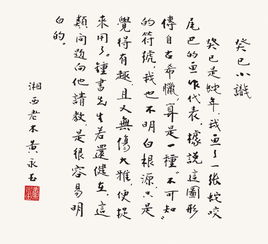 癸巳小識
癸巳是蛇年試畫了一張蛇咬
尾巴的畫作代表據說這圖形
傳自古希臘算是一種“不可知”
的符號我也不明白根源只是
覺得有趣且又無傷大雅便提
來用了鍾書先生若還健在這
類問題向他請教是很容易明
白的。
湘西老木黃永玉